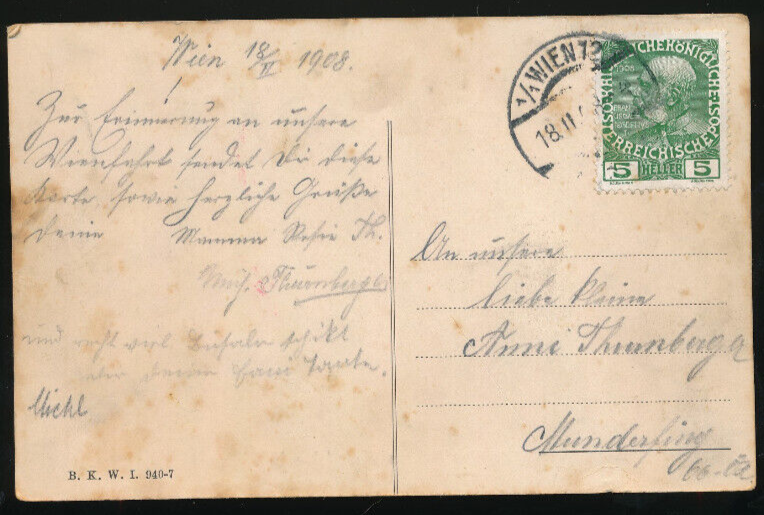 Wien 18/II 1908.
Zur Erinnerung an unsere
Wienfahrt sendet Dir diese
Karte sowie herzliche Grüße
Deine Mamma Resie Th.
Mich. Thurnberger
und recht viel schikt
dir deine Tante.
Michl
B. K. W. I. 940-7
1/1 WIEN 12
18.II.
1908
KAISERLICHE KÖNIGLICHE
ÖSTERREICHISCHE POST
5 HELLER 5
An unsere
liebe kleine
Anni Thurnberger
Munderfing